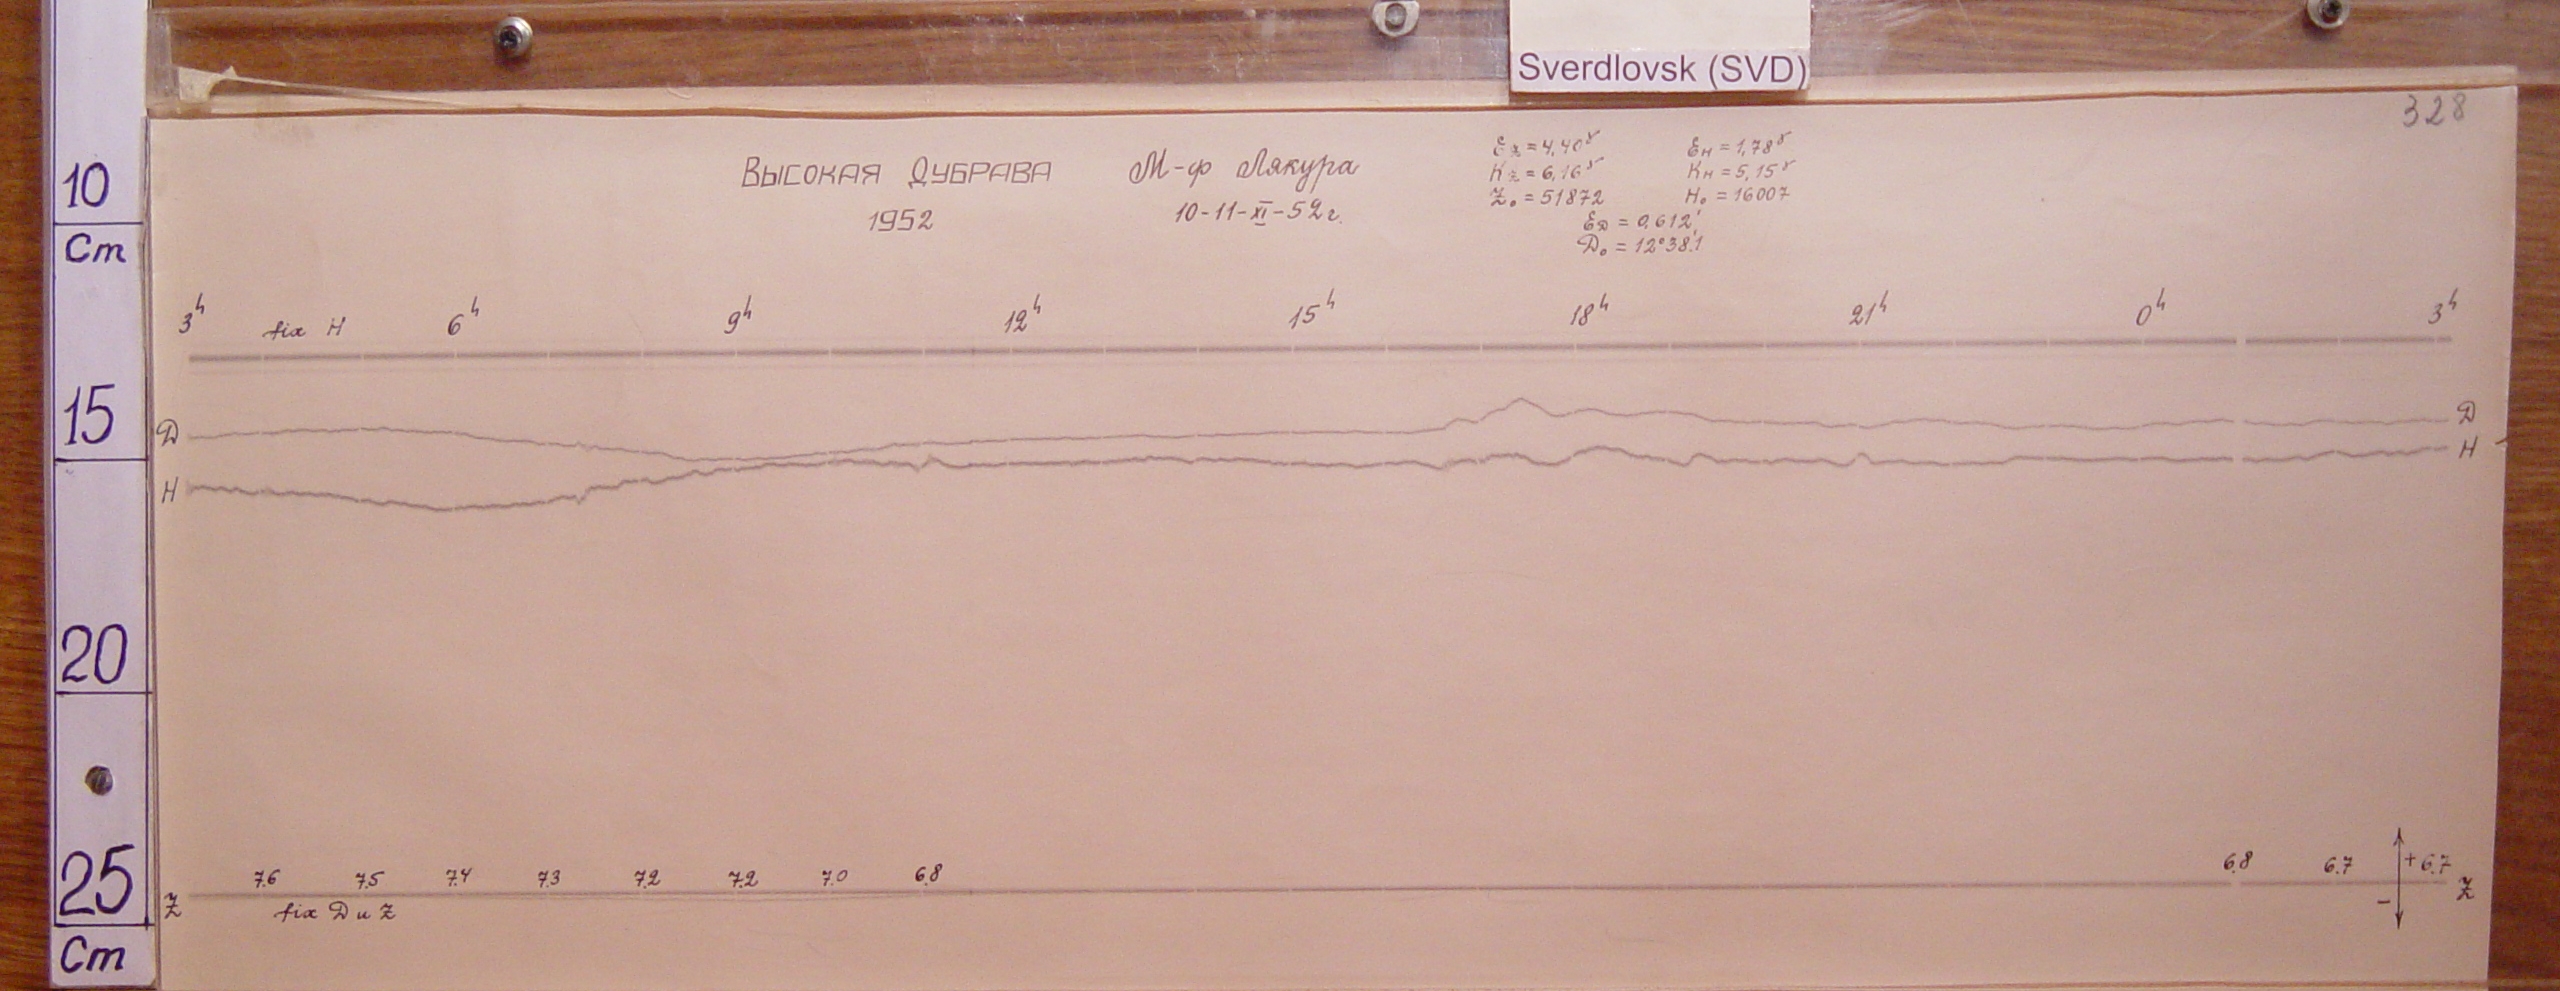 Sverdlovsk (SVD)
328
10
Cm
15
20
25
Cm
Высокая Дубрава
1952
М-ф Лякура
10-11-XI-52г.
Ez = 4,40γ EH = 1,78γ
Kz = 6,16γ KH = 5,15γ
Z₀ = 51872 H₀ = 16007
ED = 0,612'
D₀ = 12°38.1'
3h fix H 6h 9h 12h 15h 18h 21h 0h 3h
Д Д
H H
7.6 7.5 7.4 7.3 7.2 7.2 7.0 6.8 6.8 6.7 + 6.7
Z fix Д и Z - Z